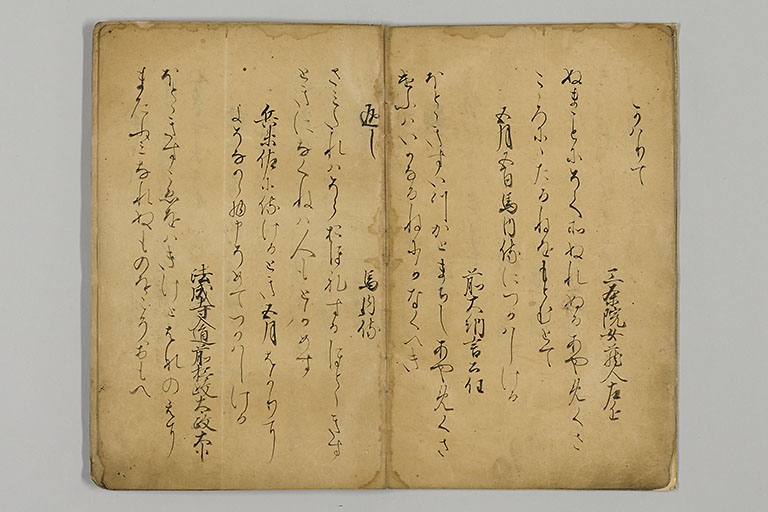 三条院女蔵人左近
ぬまことにそてそぬれぬるあやめくさ
こころににたるねをもとむとて
五月五日馬内侍につかはしける
前大納言公任
ほとゝきすいつかとまちしあやめくさ
けふはいかなるねにかなくへき
返し
馬内侍
さみたれはそらおほれするほとゝきす
ときになくねは人もとかめす
兵衛佐に侍けるとき五月はかりに
よそなから物申そめてつかはしける
法成寺入道前摂政太政大臣
ほとゝきすこゑをはきけとはなのえに
またふみなれぬものをこそおもへ